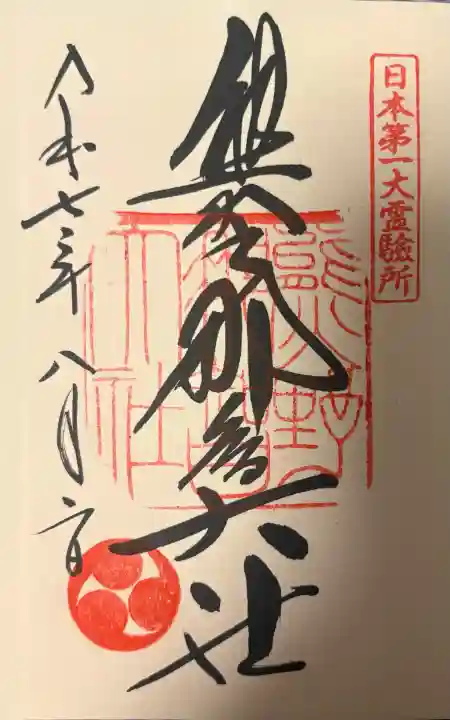 日本第一大霊驗所
熊野那智大社
熊野
那智
大社
令和七年八月二日